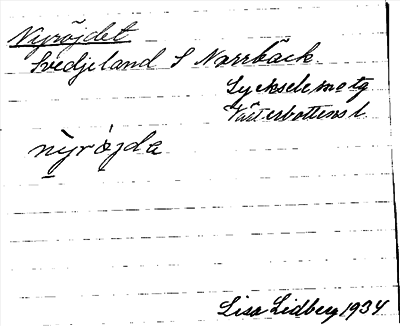 Nyröjdet
Svedjeland S Norrbäck
Lycksele motg
Västerbottens l.
nỳrö̀jda
Lisa Lidberg 1934